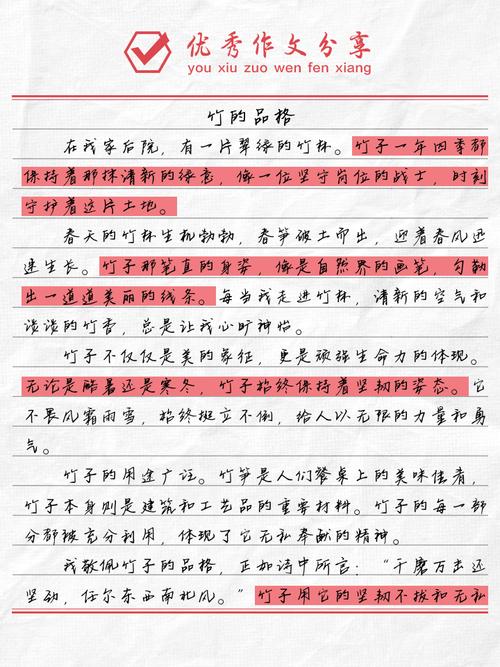 优秀作文分享
you xiu zuo wen fen xiang
竹的品格
在我家后院，有一片翠绿的竹林。竹子一年四季都
保持着那抹清新的绿意，像一位坚守岗位的战士，时刻
守护着这片土地。
春天的竹林生机勃勃，春笋破土而出，迎着春风迅
速生长。竹子那笔直的身姿，像是自然界的画笔，勾勒
出一道道美丽的线条。每当我走进竹林，清新的空气和
淡淡的竹香，总是让我心旷神怡。
竹子不仅仅是美的象征，更是顽强生命力的体现。
无论是酷暑还是寒冬，竹子始终保持着坚韧的姿态。它
不畏风霜雨雪，始终挺立不倒，给人以无限的力量和勇
气。
竹子的用途广泛。竹笋是人们餐桌上的美味佳肴，
竹子本身则是建筑和工艺品的重要材料。竹子的每一部
分都被充分利用，体现了它无私奉献的精神。
我敬佩竹子的品格，正如诗中所言：“千磨万击还
坚劲，任尔东西南北风。”竹子用它的坚韧不拔和无私